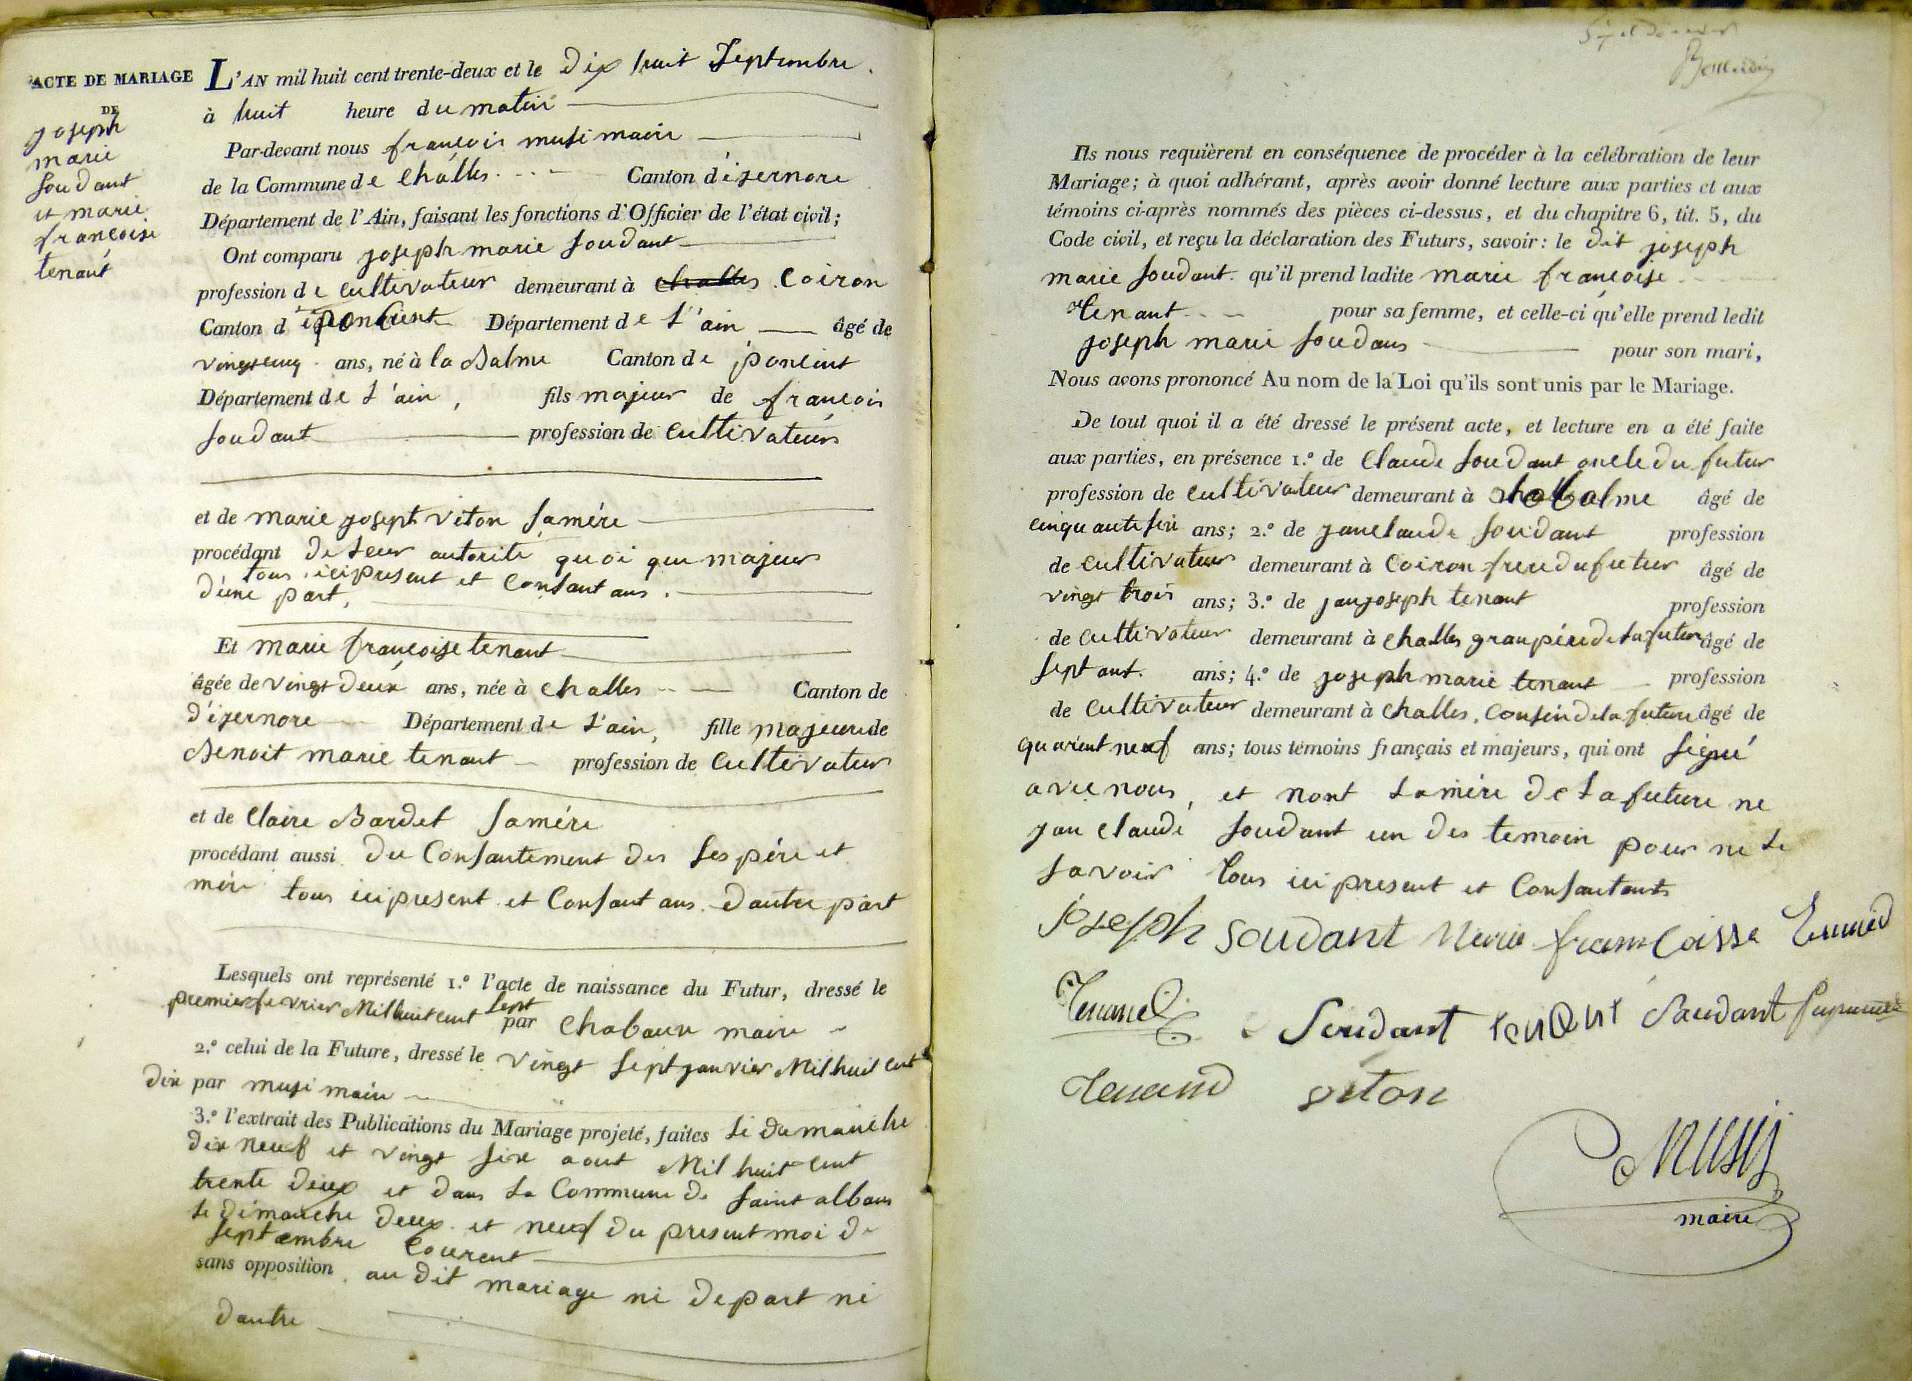 ACTE DE MARIAGE
DE
joseph
marie
soudant
et marie
françoise
tenant
L'AN mil huit cent trente-deux et le dix huit Septembre.
à huit heure du matin
Par-devant nous françois musi maire
de la Commune de Challes Canton d'izernore
Département de l'Ain, faisant les fonctions d'Officier de l'état civil;
Ont comparu joseph marie soudant
profession de cultivateur demeurant à challes Coiron
Canton d' poncient Département de L'ain âgé de
vingt cinq ans, né à la Balme Canton de poncint
Département de L'ain, fils majeur de françois
soudant profession de cultivateurs
et de marie joseph viton samére
procédant de leur autorité quoi que majeur
tous ici present et Consant ans.
d'une part,
Et marie françoise tenant
âgée de vingt deux ans, née à challes Canton de
d'izernore Département de L'ain, fille majeure de
Benoit marie tenant profession de cultivateur
et de Claire Bardet samére
procédant aussi du Consantement des ses pére et
mére tous ici present et Consant ans dautre part
Lesquels ont représenté 1.º l'acte de naissance du Futur, dressé le
premier fevrier Mil huit cent sept par Chabaux maire
2.º celui de la Future, dressé le vingt sept janvier Mil huit cent
dix par musi maire
3.º l'extrait des Publications du Mariage projeté, faites Le dimanche
dix neuf et vingt six aout Mil huit cent
trente deux et dans La Commune de saint alban
Le dimanche deux et neuf du present moi de
septembre Courent
sans opposition au dit mariage ni depart ni
dautre
Ils nous requièrent en conséquence de procéder à la célébration de leur
Mariage; à quoi adhérant, après avoir donné lecture aux parties et aux
témoins ci-après nommés des pièces ci-dessus, et du chapitre 6, tit. 5, du
Code civil, et reçu la déclaration des Futurs, savoir: le dit joseph
marie soudant qu'il prend ladite marie françoise
tenant pour sa femme, et celle-ci qu'elle prend ledit
joseph marie soudans pour son mari,
Nous avons prononcé Au nom de la Loi qu'ils sont unis par le Mariage.
De tout quoi il a été dressé le présent acte, et lecture en a été faite
aux parties, en présence 1.º de Claude soudant oncle du futur
profession de cultivateur demeurant à Balme âgé de
cinquante six ans; 2.º de janclaude soudant profession
de cultivateur demeurant à Coiron frere du futur âgé de
vingt trois ans; 3.º de janjoseph tenant profession
de cultivateur demeurant à challes granpére de la future âgé de
sept ant. ans; 4.º de joseph marie tenant profession
de cultivateur demeurant à challes, Cousin de la future âgé de
quarent neuf ans; tous témoins français et majeurs, qui ont signé
avec nous, et nont La mére de La future ne
jan claude soudant un des temoin pour ne Le
savoir tous ici present et Consantants
joseph soudant Marie francoisse
Soudant tenant Soudant
Tenand viton
Musy
maire